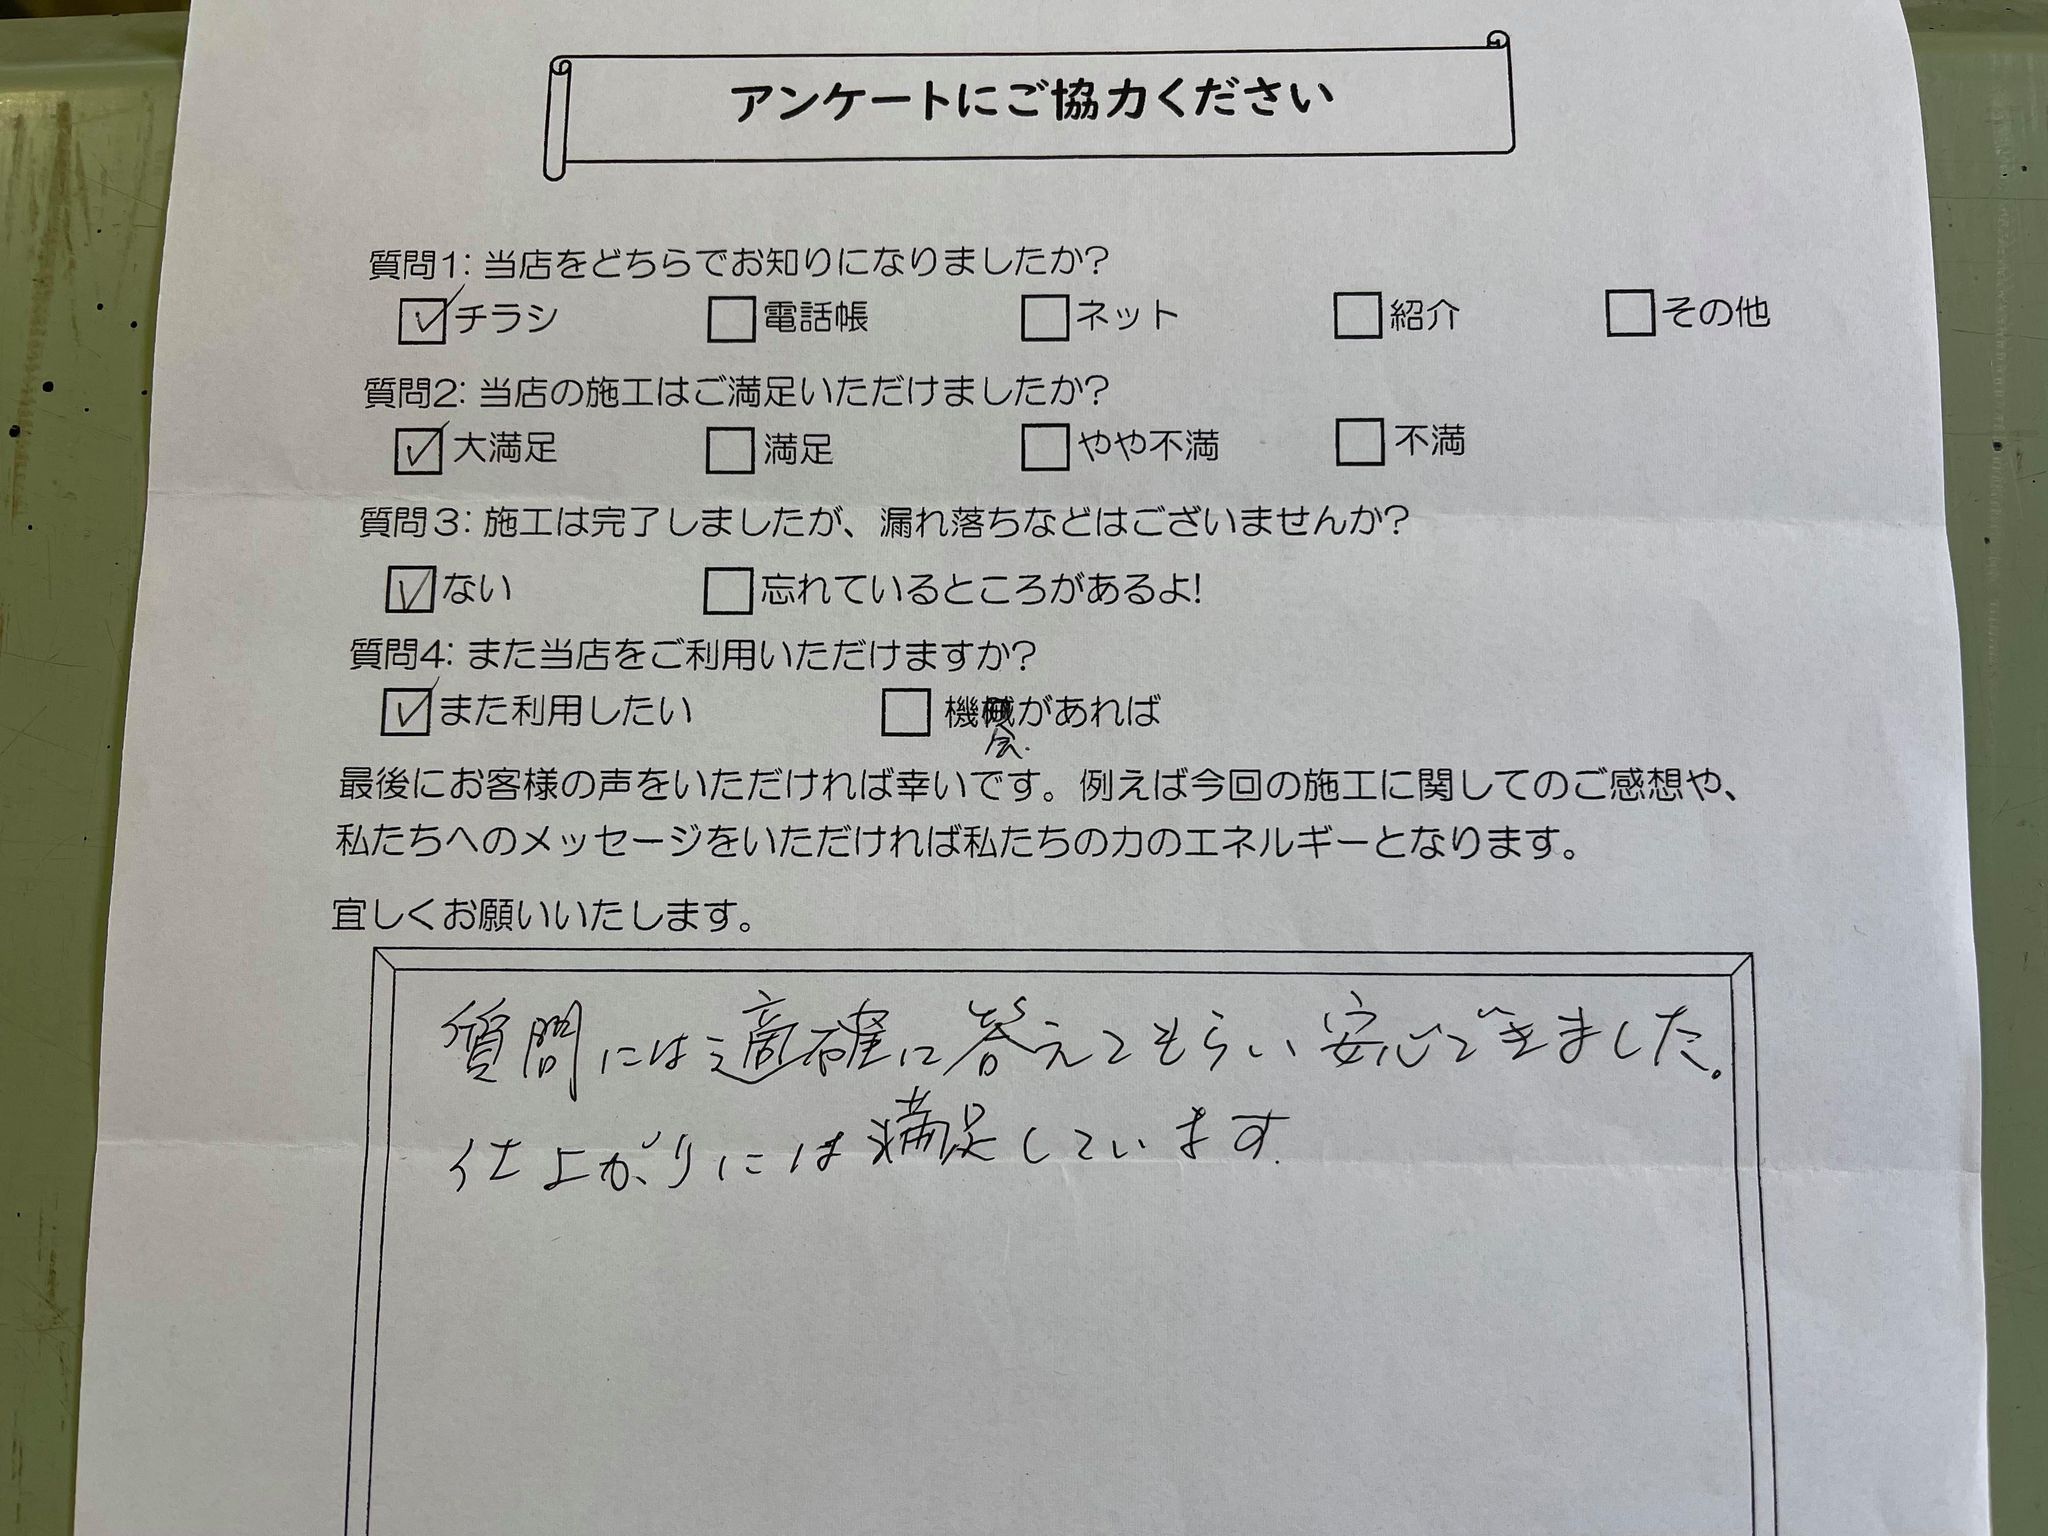 アンケートにご協力ください
質問1: 当店をどちらでお知りになりましたか?
☑チラシ □電話帳 □ネット □紹介 □その他
質問2: 当店の施工はご満足いただけましたか?
☑大満足 □満足 □やや不満 □不満
質問3: 施工は完了しましたが、漏れ落ちなどはございませんか?
☑ない □忘れているところがあるよ!
質問4: また当店をご利用いただけますか?
☑また利用したい □機械があれば
会
最後にお客様の声をいただければ幸いです。例えば今回の施工に関してのご感想や、
私たちへのメッセージをいただければ私たちの力のエネルギーとなります。
宜しくお願いいたします。
質問には適確に答えてもらい安心できました。
仕上がりには満足しています.